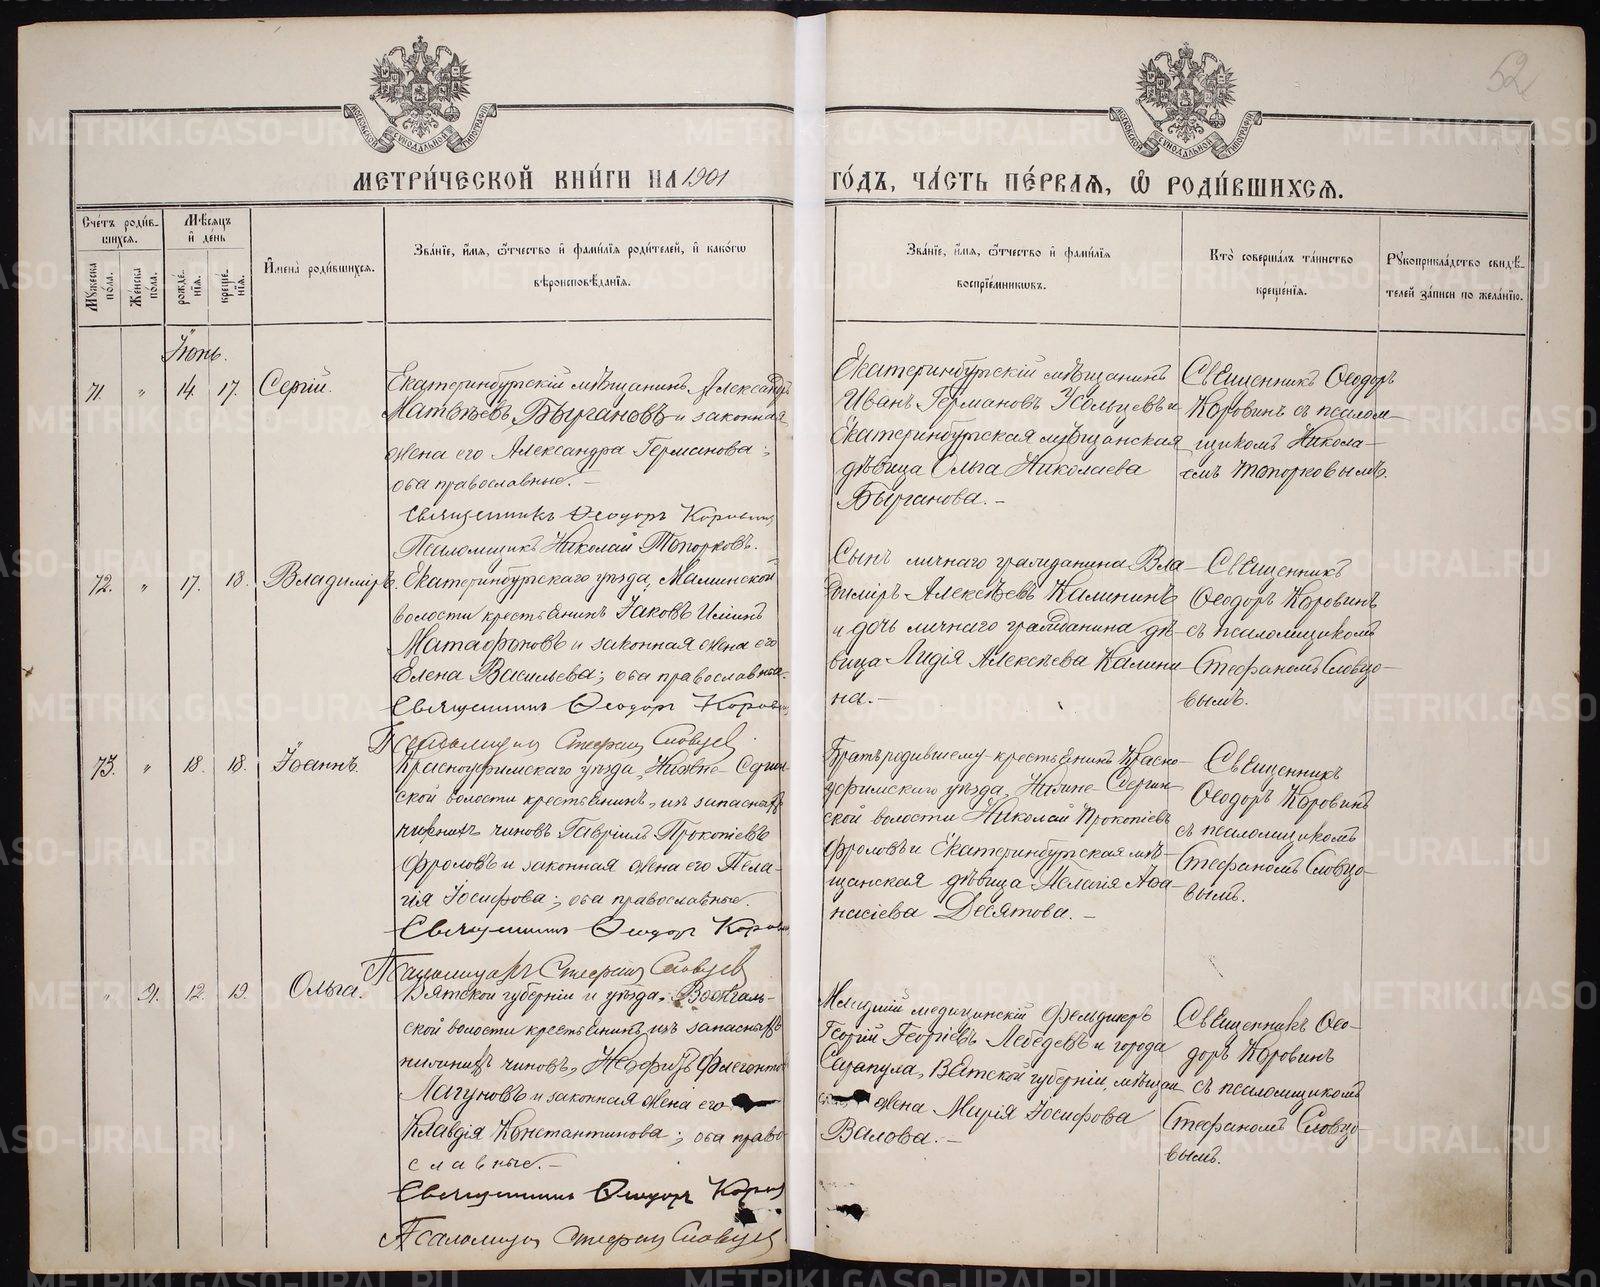 52
МЕТРИ́ЧЕСКОЙ КНИ́ГИ НА 1901
ГО́ДЪ, ЧА́СТЬ ПЕ́РВАѦ, Ѡ҆ РОДИ́ВШИХСѦ.
Сче́тъ роди́в-
шихся.
Мѣ́сяцъ
и҆ де́нь
Мꙋ́жеска по́ла.
Же́нска по́ла.
рожде́-
нїѧ.
креще́-
нїѧ.
И҆мена̀ роди́вшихся.
Зва́нїе, и҆́мѧ, ѻ҆́тчество и҆ фами́лїѧ роди́телей, и҆ како́гѡ
вѣроисповѣ́данїѧ.
Зва́нїе, и҆́мѧ, ѻ҆́тчество и҆ фами́лїѧ
воспрїе́мникѡвъ.
Кто̀ соверша́лъ та́инство
креще́нїѧ.
Рꙋкоприкла́дство свидѣ́-
телей за́писи по жела́нїю.
Іюнь.
71. „ 14. 17. Сергій.
Екатеринбургскій мѣщанинъ Александръ
Матвѣевъ Быгановъ и законная
жена его Александра Германова;
оба православные. —
Священникъ Ѳеодоръ Коровинъ
Псаломщикъ Николай Топорковъ.
Екатеринбургскій мѣщанинъ
Иванъ Германовъ Усольцевъ и
Екатеринбургская мѣщанская
дѣвица Ольга Николаева
Быганова. —
Священникъ Ѳеодоръ
Коровинъ съ псалом-
щикомъ Никола-
емъ Топорковымъ.
72. „ 17. 18. Владиміръ.
Екатеринбургскаго уѣзда, Маминской
волости крестьянинъ Іаковъ Ильинъ
Матафоновъ и законная жена его
Елена Васильева; оба православные.
Священникъ Ѳеодоръ Коровинъ
Псаломщикъ Стефанъ Словцовъ
Сынъ личнаго гражданина Вла-
диміръ Алексѣевъ Калининъ
и дочь личнаго гражданина дѣ-
вица Лидія Алексѣева Калини-
на. —
Священникъ
Ѳеодоръ Коровинъ
съ псаломщикомъ
Стефаномъ Словцо-
вымъ.
73. „ 18. 18. Іоаннъ.
Красноуфимскаго уѣзда, Нижне-Сергин-
ской волости крестьянинъ, изъ запасныхъ
нижнихъ чиновъ Гавріилъ Прокопіевъ
Фроловъ и законная жена его Пела-
гія Іосифова; оба православные.
Священникъ Ѳеодоръ Коровинъ
Псаломщикъ Стефанъ Словцовъ
Братъ родившему крестьянинъ Красно-
уфимскаго уѣзда, Нижне-Сергин-
ской волости Николай Прокопіевъ
Фроловъ и Екатеринбургская мѣ-
щанская дѣвица Пелагія Аѳа-
насіева Десятова. —
Священникъ
Ѳеодоръ Коровинъ
съ псаломщикомъ
Стефаномъ Словцо-
вымъ.
„ 31. 12. 19. Ольга.
Вятской губерніи и уѣзда,
ской волости крестьянинъ, изъ запасныхъ
нижнихъ чиновъ,
Лагуновъ и законная жена его
Клавдія Константинова; оба право-
славные. —
Священникъ Ѳеодоръ Коровинъ
Псаломщикъ Стефанъ Словцовъ
Младшій медицинскій фельдшеръ
Георгій Георгіевъ Лебедевъ и города
Сарапула, Вятской губерніи, мѣщан-
жена Марія Іосифова
Валова. —
Священникъ Ѳео-
доръ Коровинъ
съ псаломщикомъ
Стефаномъ Словцо-
вымъ.